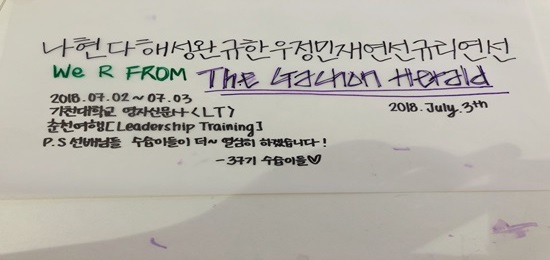 나현다해성완규한우정민재연선규리연선
We R FROM The Gachon Herald
2018.07.02 ~ 07.03
2018. July. 3th
가천대학교 영자신문사 <LT>
춘천여행 [Leadership Training]
P.S 선배님들 수습이들이 더~ 열심히 하겠습니다!
- 37기 수습이들♡